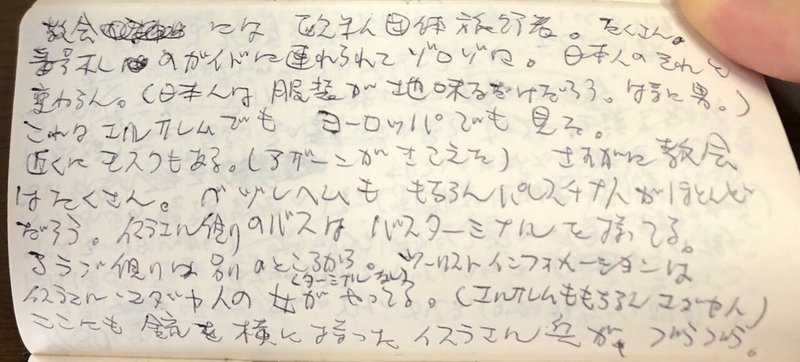 教会には 西欧人団体旅行者。たくさん。
番号札のガイドに連れられてゾロゾロ。日本人のそれと
変わらん。(日本人は服装が地味なだけだろう。特に男。)
これはエルサレムでもヨーロッパでも見た。
近くにモスクもある。(アザーンがきこえた) さすがに教会
はたくさん。ベツレヘムももちろんパレスチナ人がほとんど
だろう。イスラエル側のバスはバスターミナルを持ってる。
アラブ側は別のところから。(ターミナルない) ツーリストインフォメーションは
イスラエル・ユダヤ人の女がやってる。(エルサレムももちろんユダヤ人)
ここにも銃を横に持ったイスラエル兵が、つらつら。